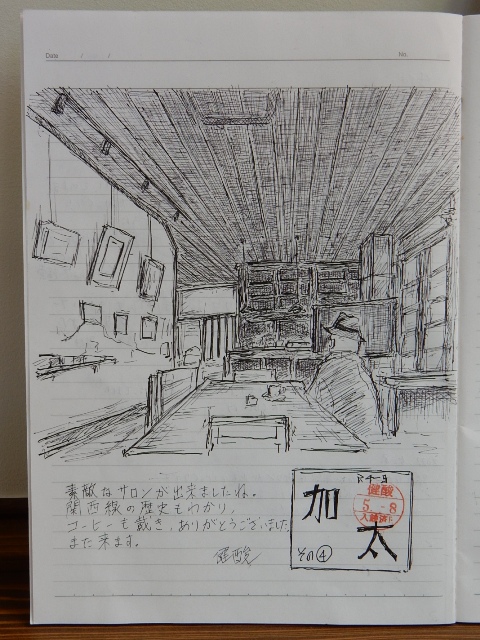 Date
No.
素敵なサロンが出来ましたね。
関西線の歴史もわかり、
コーヒーも戴き、ありがとうございました
また来ます。
健酸
R4-9
加
太
健酸
5-8
その④